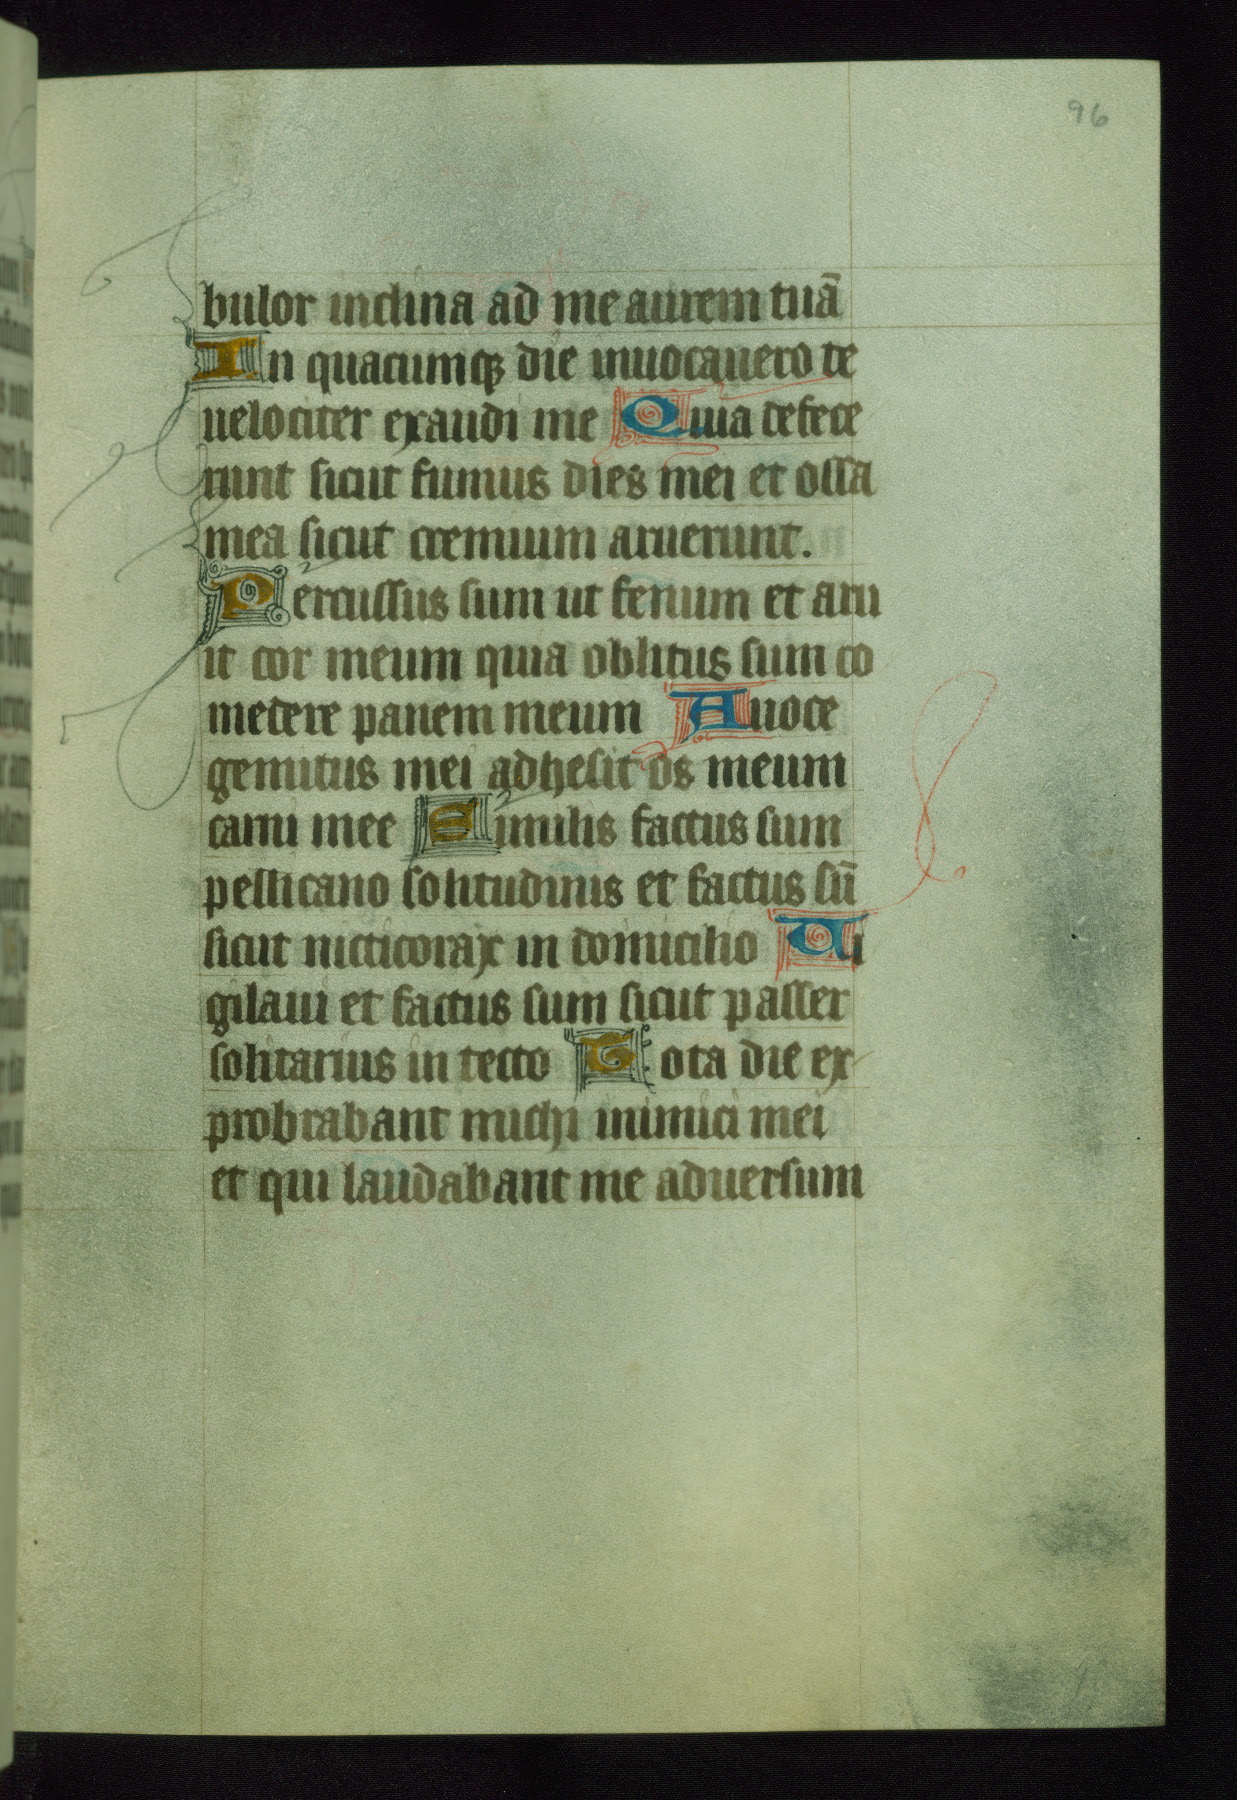 96
bulor inclina ad me aurem tuā
In quacumqꝫ die inuocauero te
uelociter exaudi me Quia defece
runt sicut fumus dies mei et ossa
mea sicut cremium aruerunt.
Percussus sum ut fenum et aru
it cor meum quia oblitus sum co
medere panem meum A uoce
gemitus mei adhesit os meum
carni mee Similis factus sum
pellicano solitudinis et factus sū
sicut nicticorax in domicilio Ui
gilaui et factus sum sicut passer
solitarius in tecto Tota die ex
probrabant michi inimici mei
et qui laudabant me aduersum